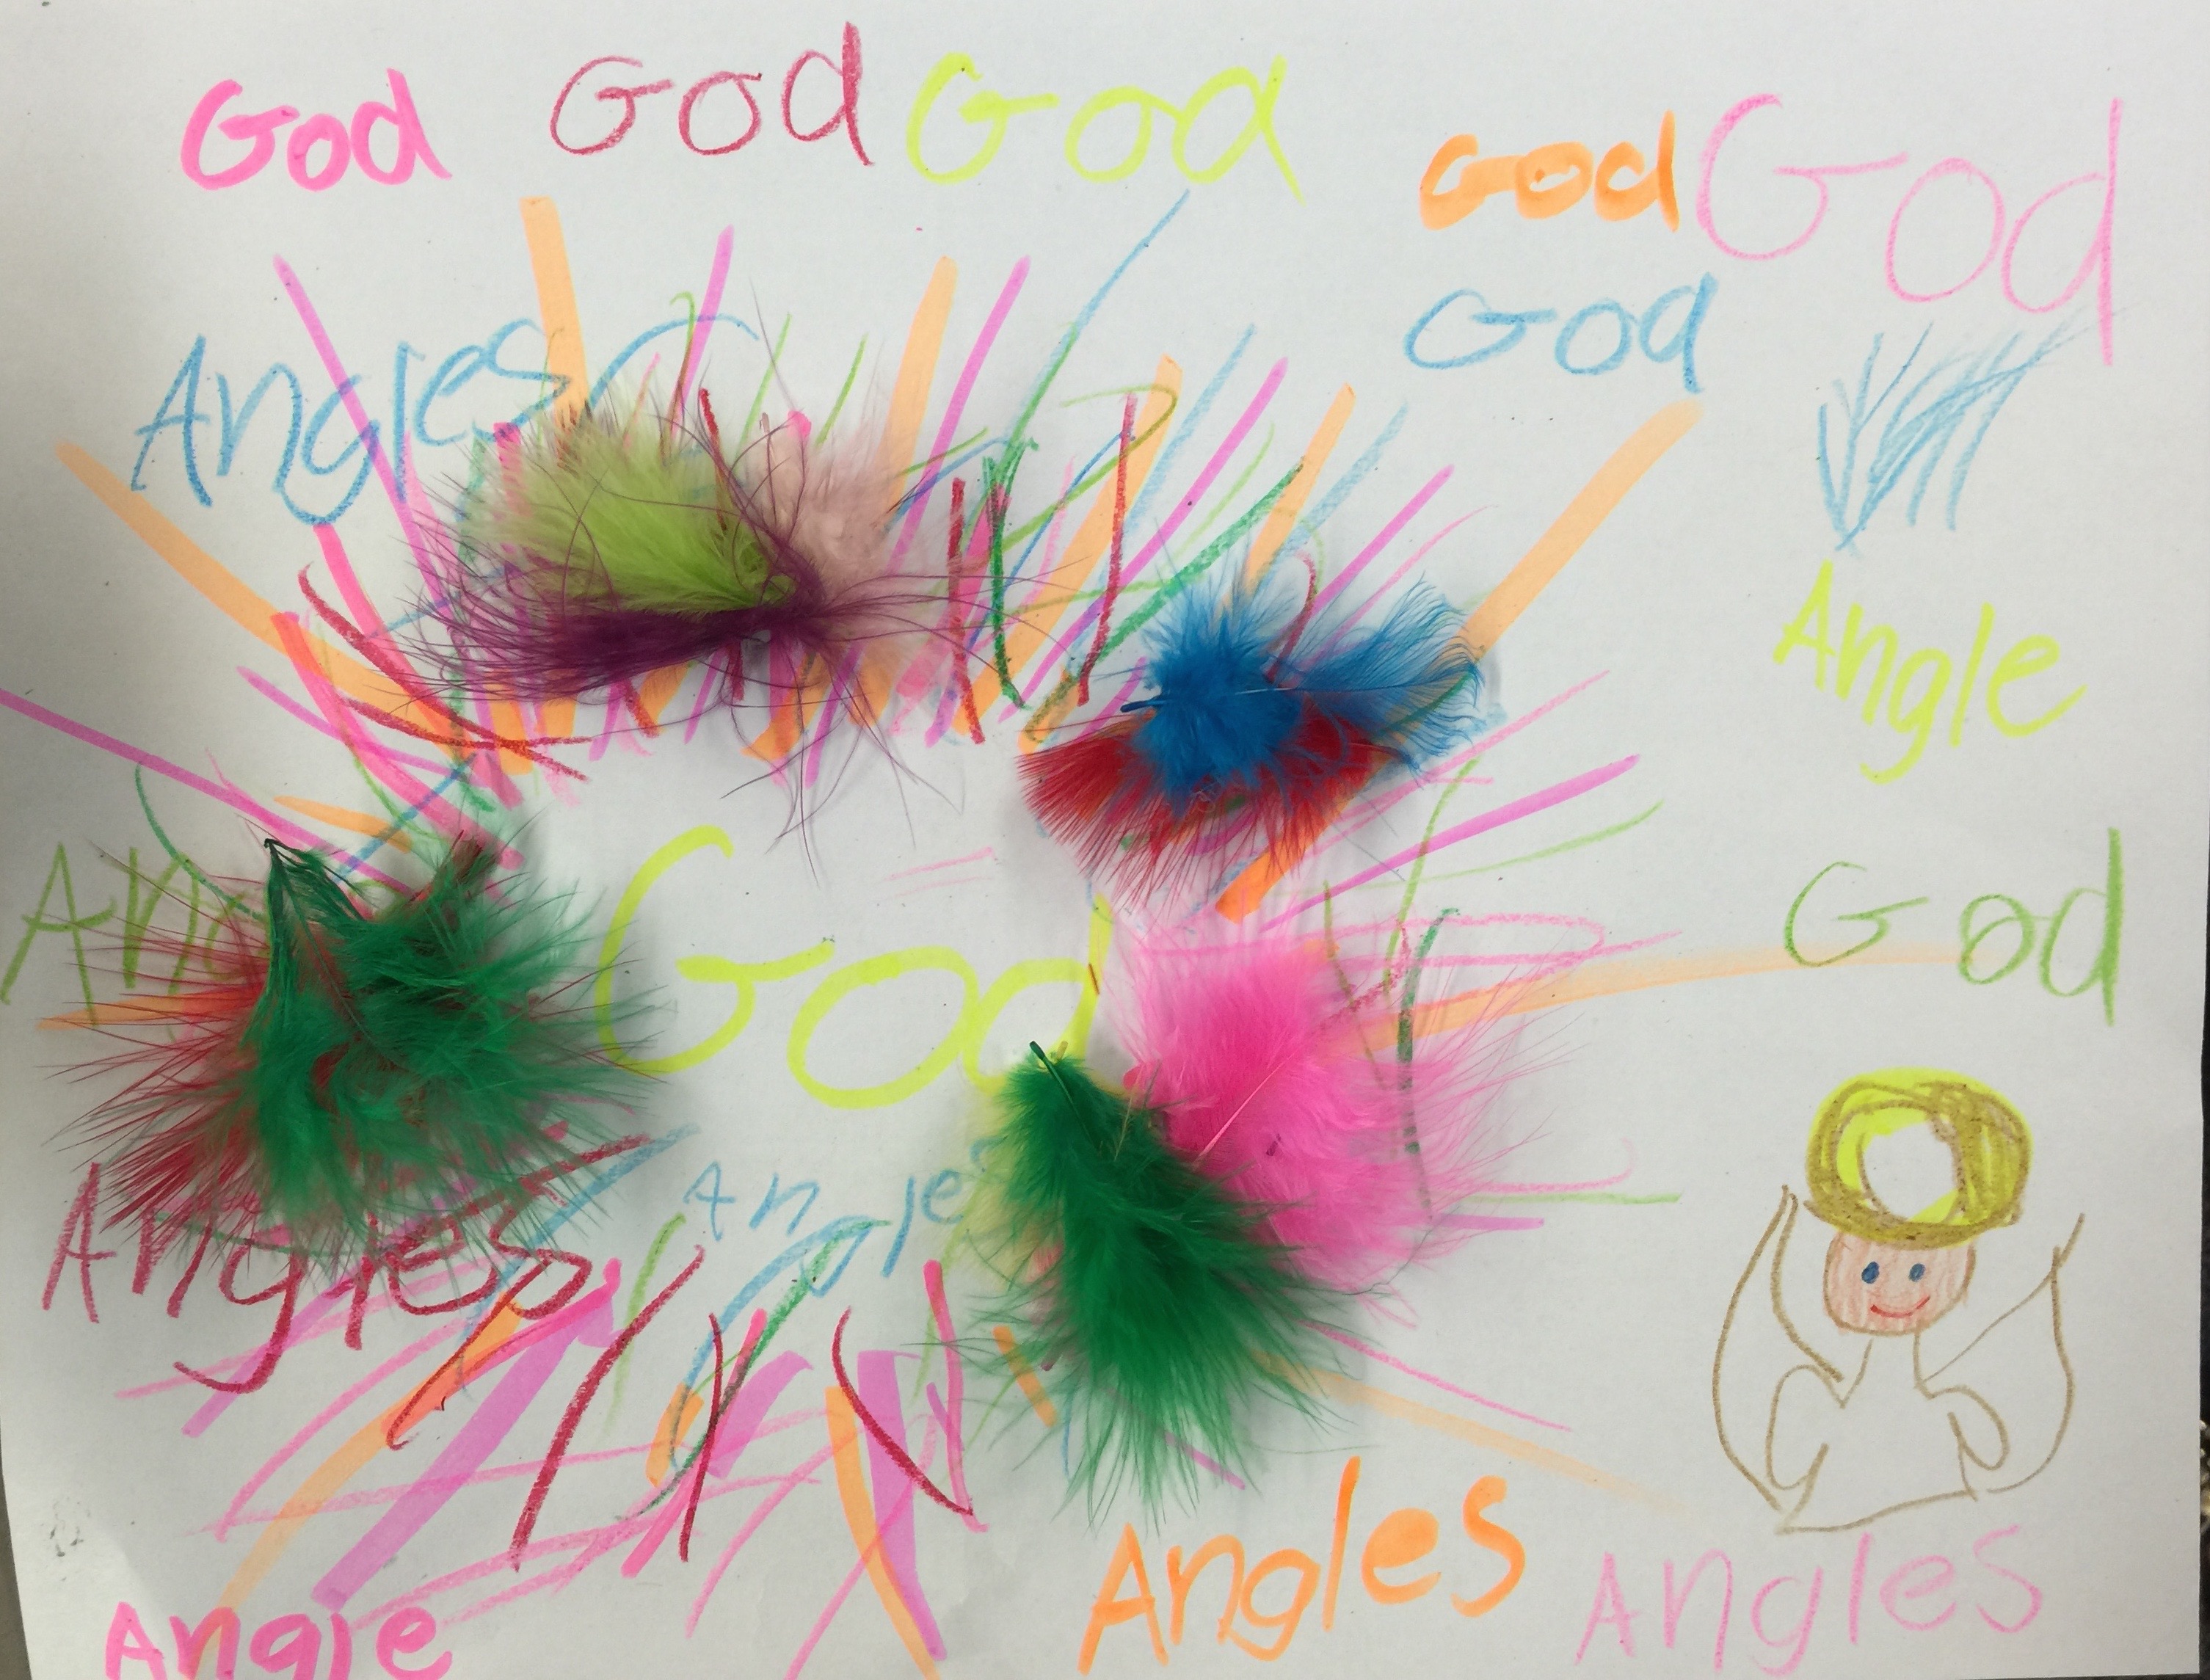 God God God God God
God
Angles
Angle
God
God
Angles
Angles
Angles
Angle